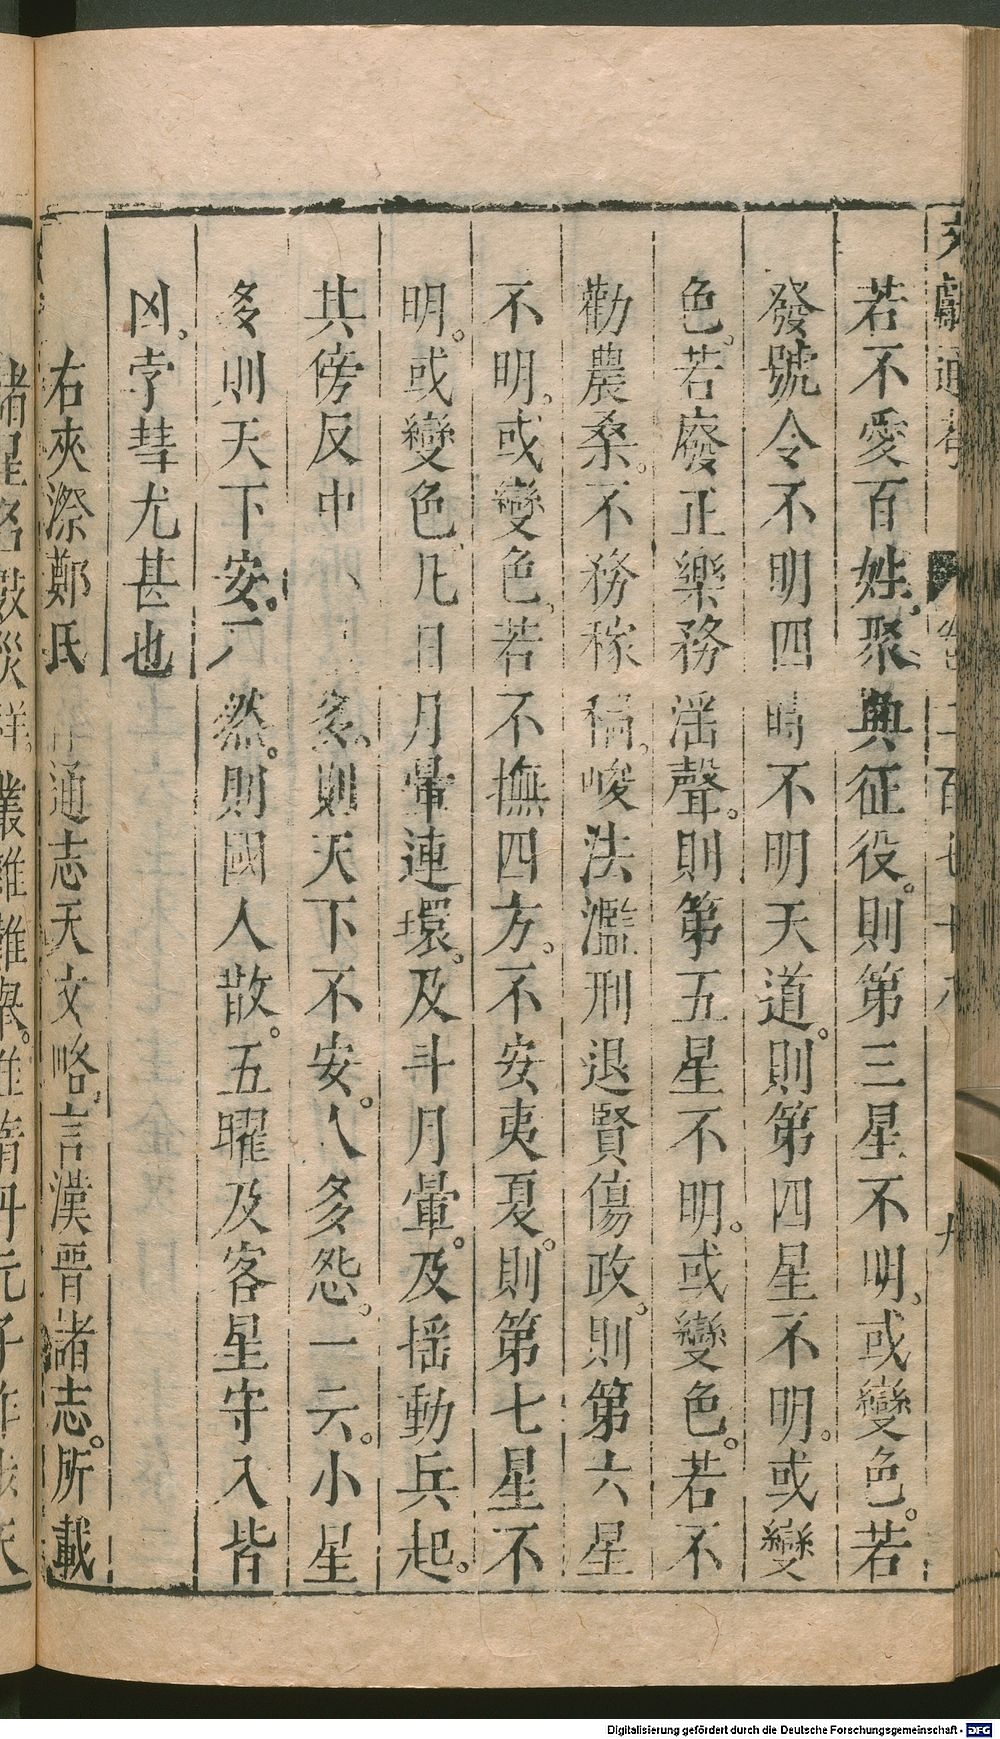 若不愛百姓。聚興征役。則第三星不明。或變色。若
發號令不明四時不明天道。則第四星不明。或變
色。若廢正樂務淫聲。則第五星不明。或變色。若不
勸農桑。不務稼穡。峻法濫刑退賢傷政。則第六星
不明。或變色。若不撫四方。不安夷夏。則第七星不
明。或變色。凡日月暈連環。及斗月暈。及揺動兵起。
共傍反中多。則天下不安。人多怨。一云。小星
多則天下安。不然。則國人散。五曜及客星守入皆
凶。孛彗尤甚也
右夾漈鄭氏通志天文略。言漢晉諸志。所載
Digitalisierung gefördert durch die Deutsche Forschungsgemeinschaft - DFG